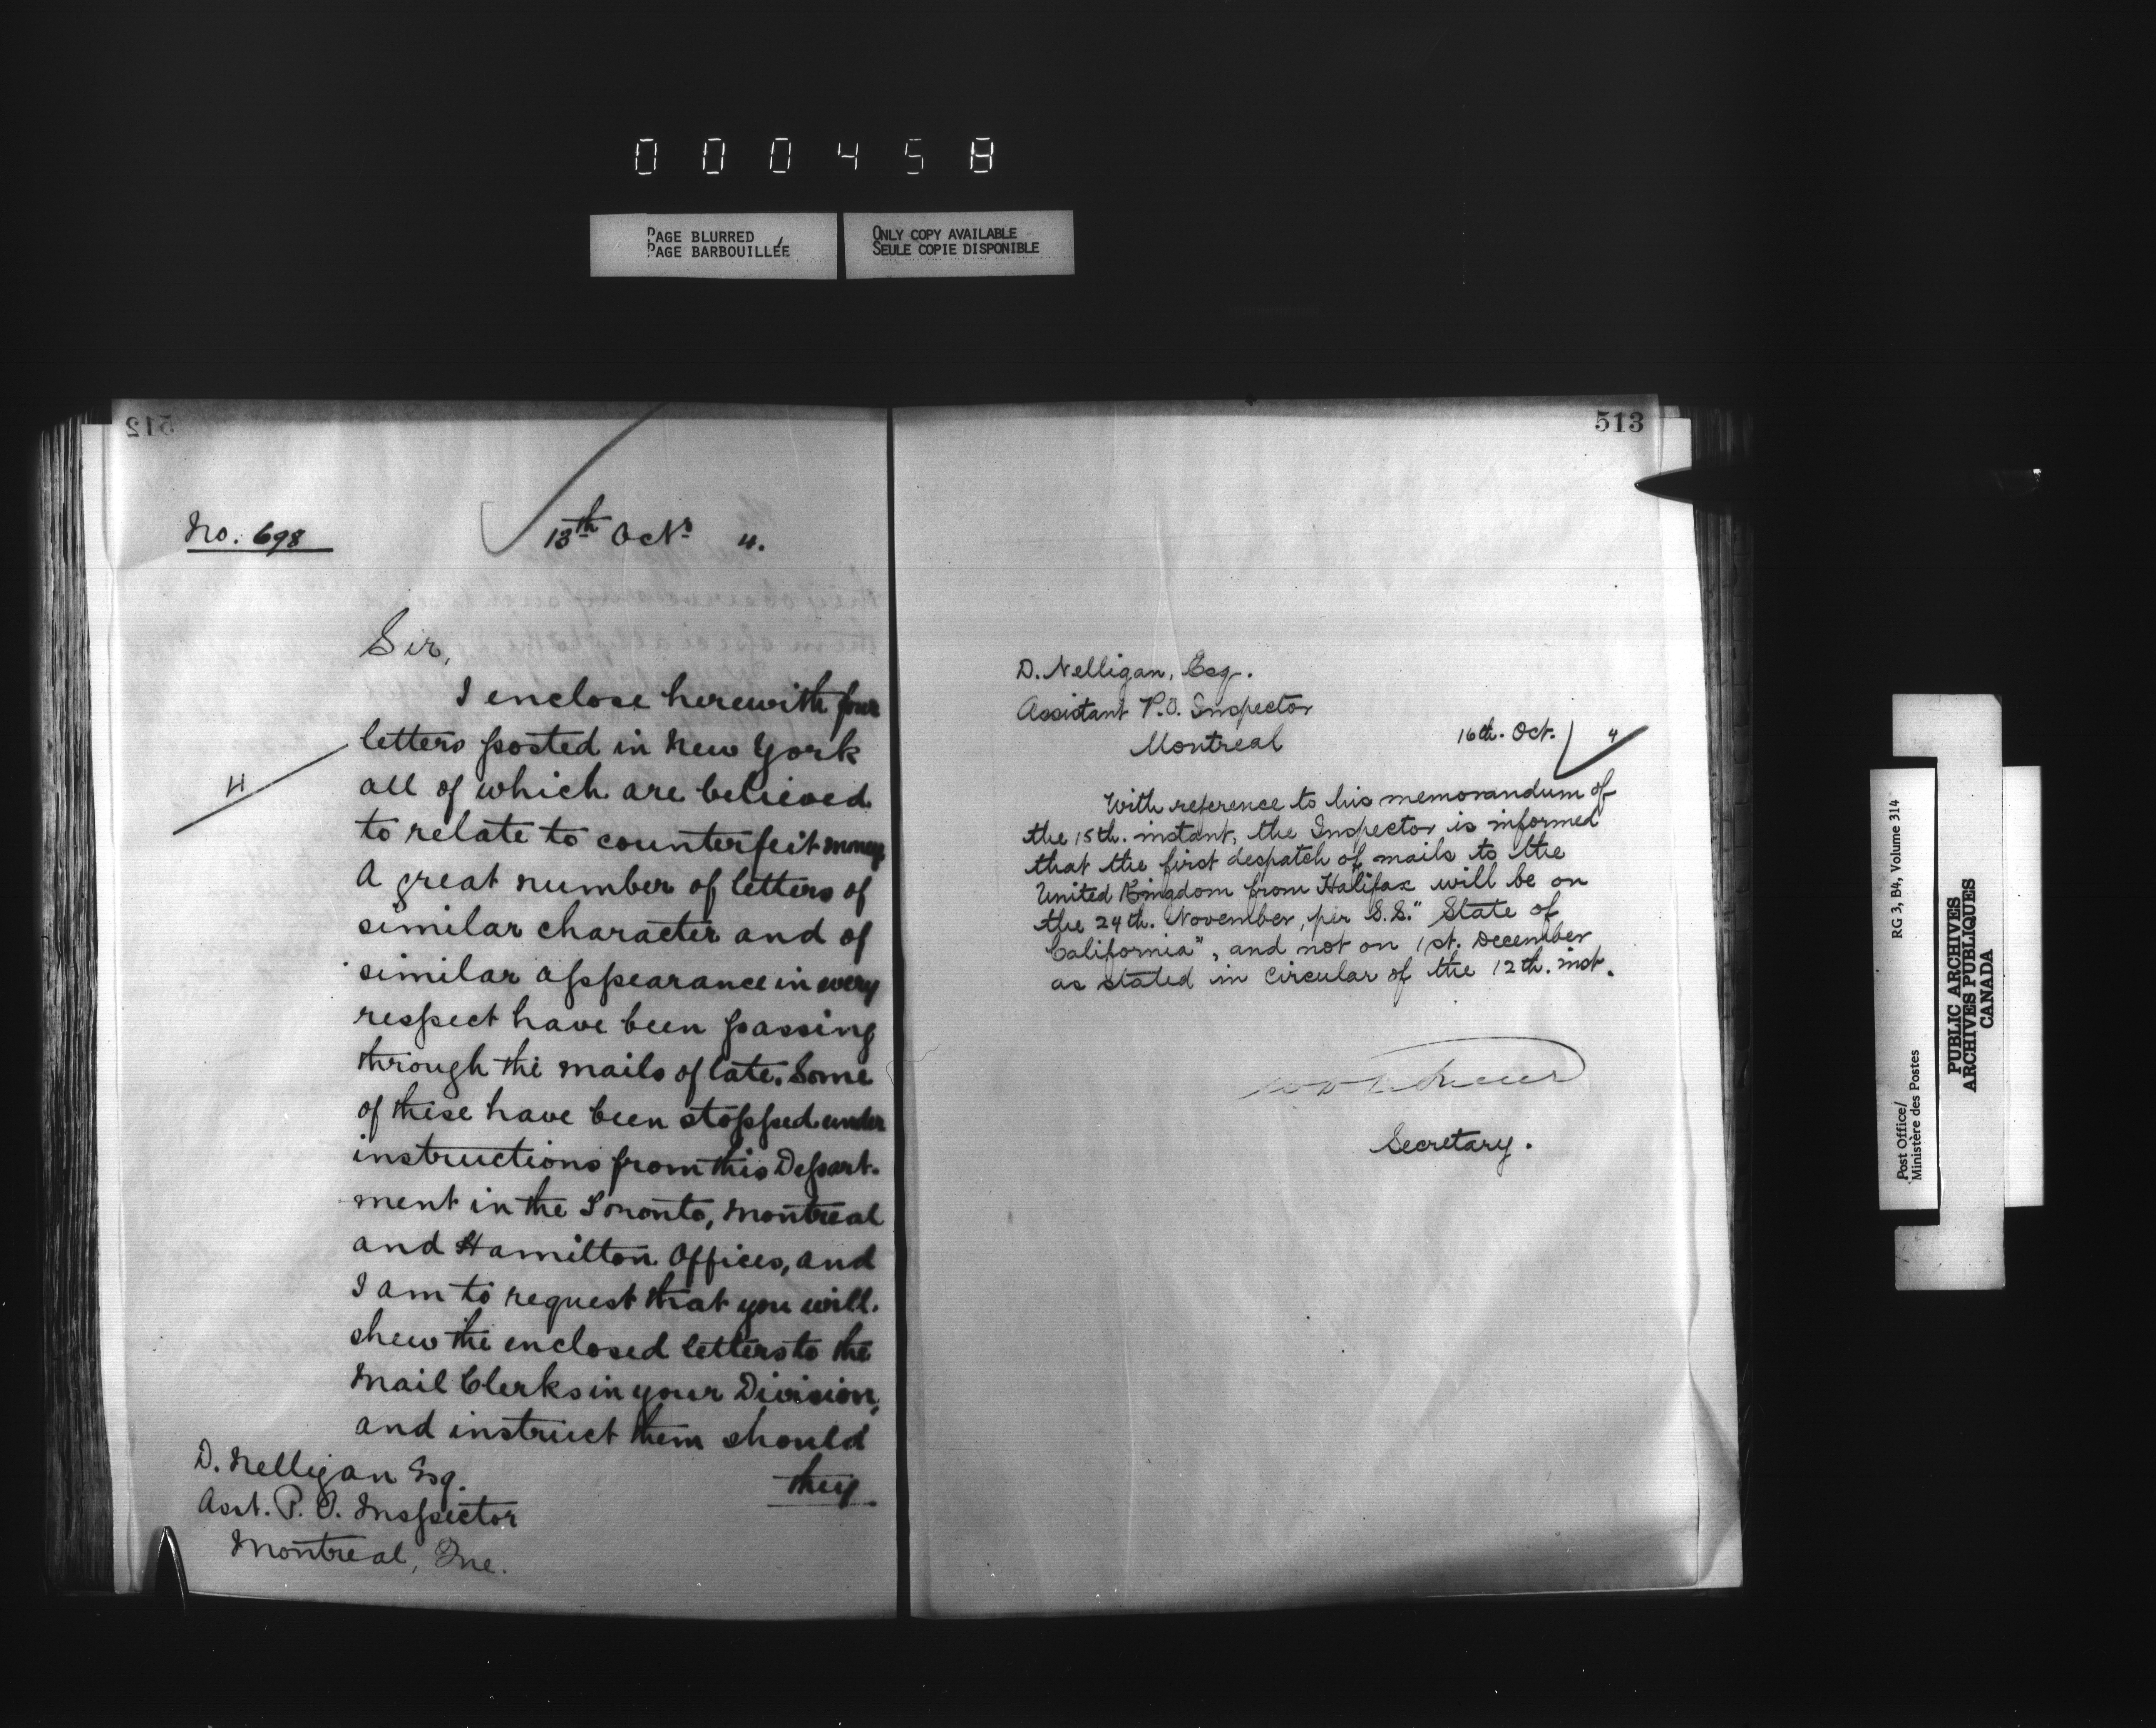 000458
PAGE BLURRED
PAGE BARBOUILLÉE
ONLY COPY AVAILABLE
SEULE COPIE DISPONIBLE
512
No. 698
13th Octr 4.
Sir,
I enclose herewith four
letters posted in New York
all of which are believed
to relate to counterfeit money
A great number of letters of
similar character and of
similar appearance in every
respect have been passing
through the mails of late. Some
of these have been stopped under
instructions from this Depart-
ment in the Toronto, Montreal
and Hamilton Offices, and
I am to request that you will
shew the enclosed letters to the
Mail Clerks in your Division,
and instruct them should
they
4
D. Nelligan Esq.
Asst. P. O. Inspector
Montreal, Que.
513
D. Nelligan, Esq.
Assistant P.O. Inspector
Montreal
16th. Oct. 4
With reference to his memorandum of
the 15th. instant, the Inspector is informed
that the first despatch of mails to the
United Kingdom from Halifax will be on
the 24th. November, per S.S. "State of
California", and not on 1st. December
as stated in circular of the 12th. inst.
Secretary.
Post Office/
Ministère des Postes
RG 3, B4, Volume 314
PUBLIC ARCHIVES
ARCHIVES PUBLIQUES
CANADA